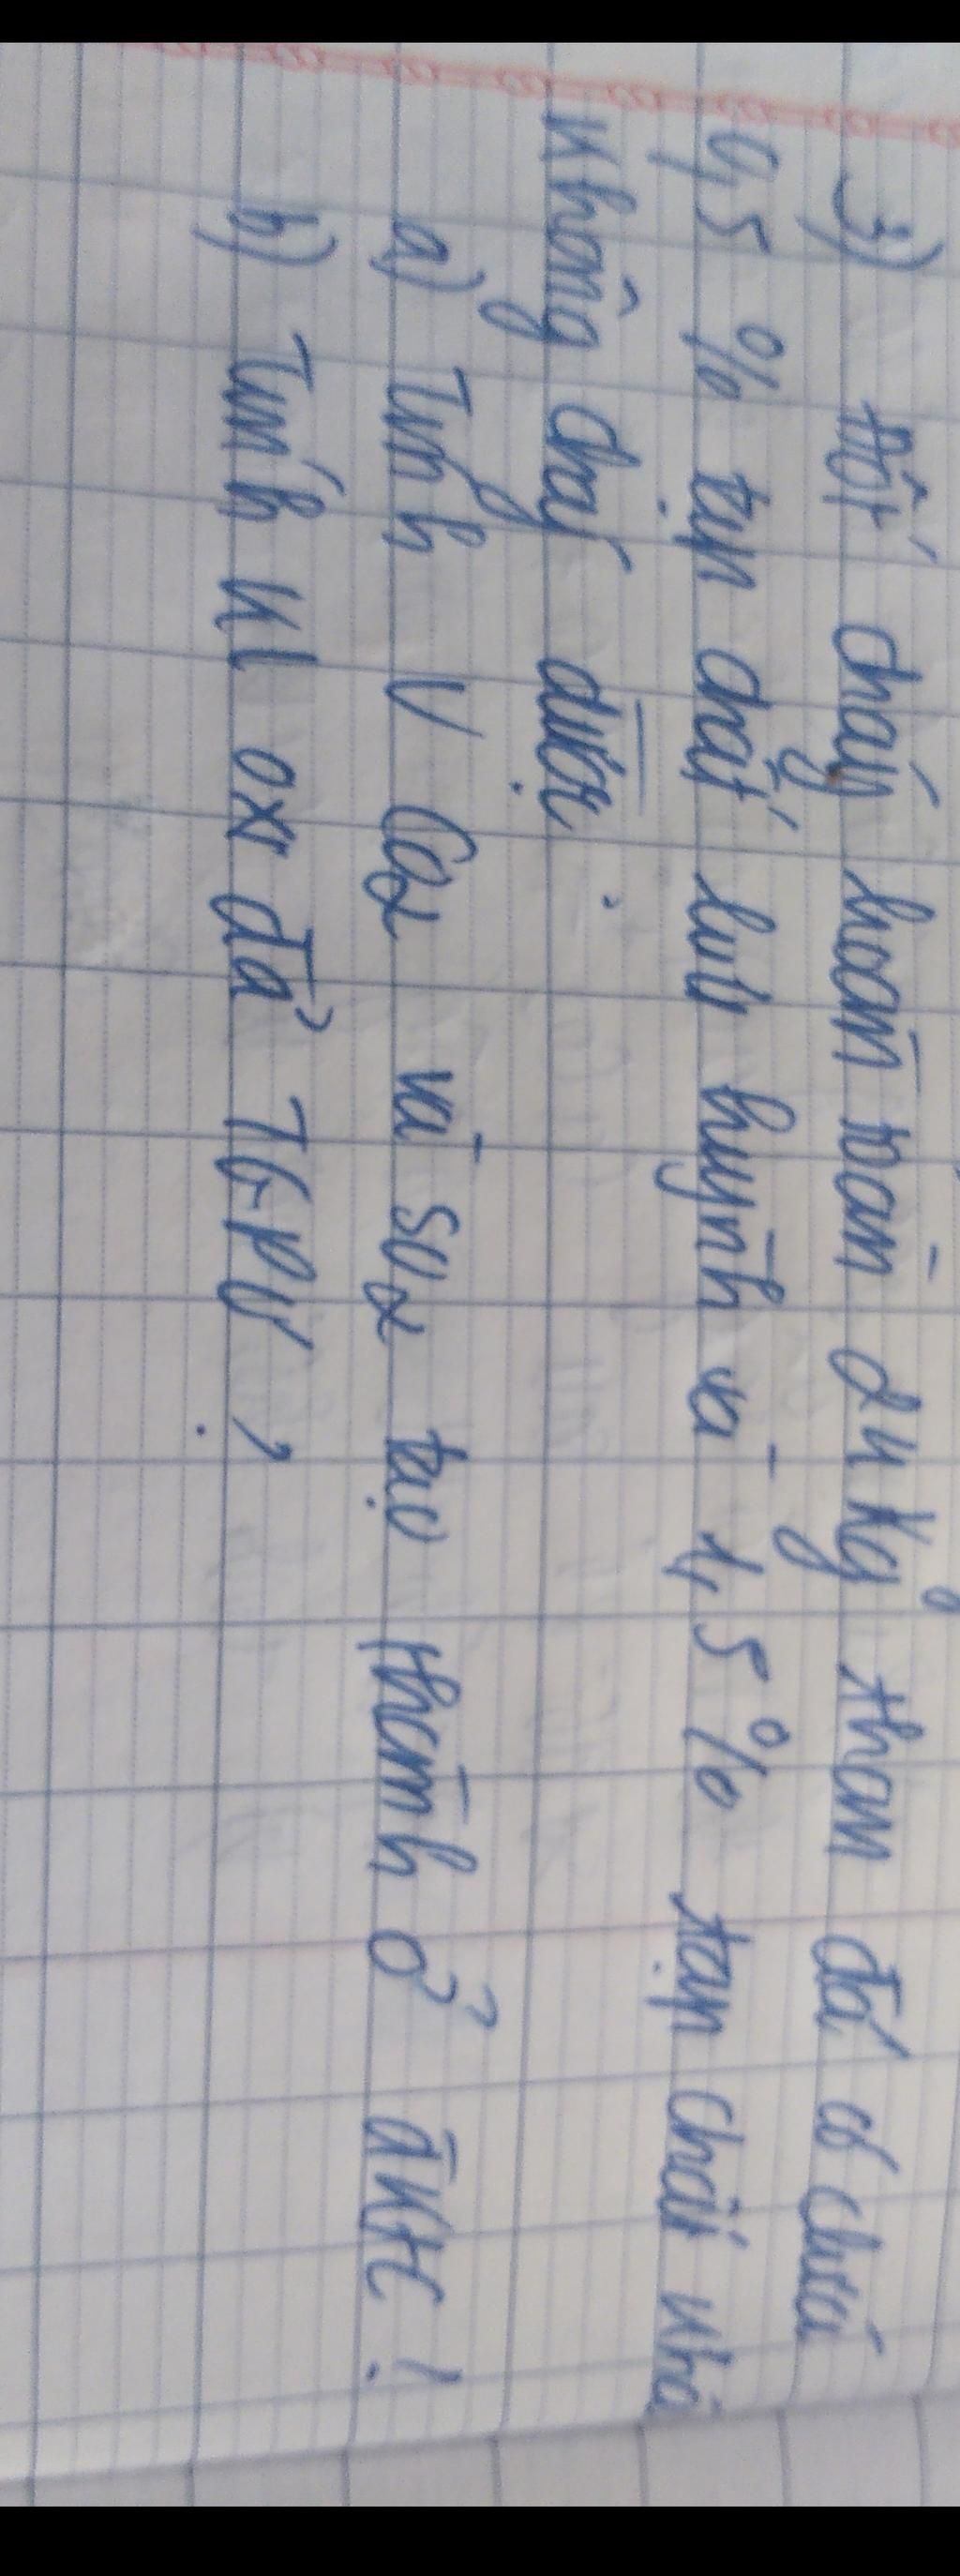 3) Đốt cháy hoàn toàn 24 kg than đá có chứa
0,5 % tạp chất lưu huỳnh và 1,5 % tạp chất khá
không cháy được.
a) Tính V CO2 và SO2 tạo thành ở đktc !
b) Tính kl oxi đã TGPƯ ?